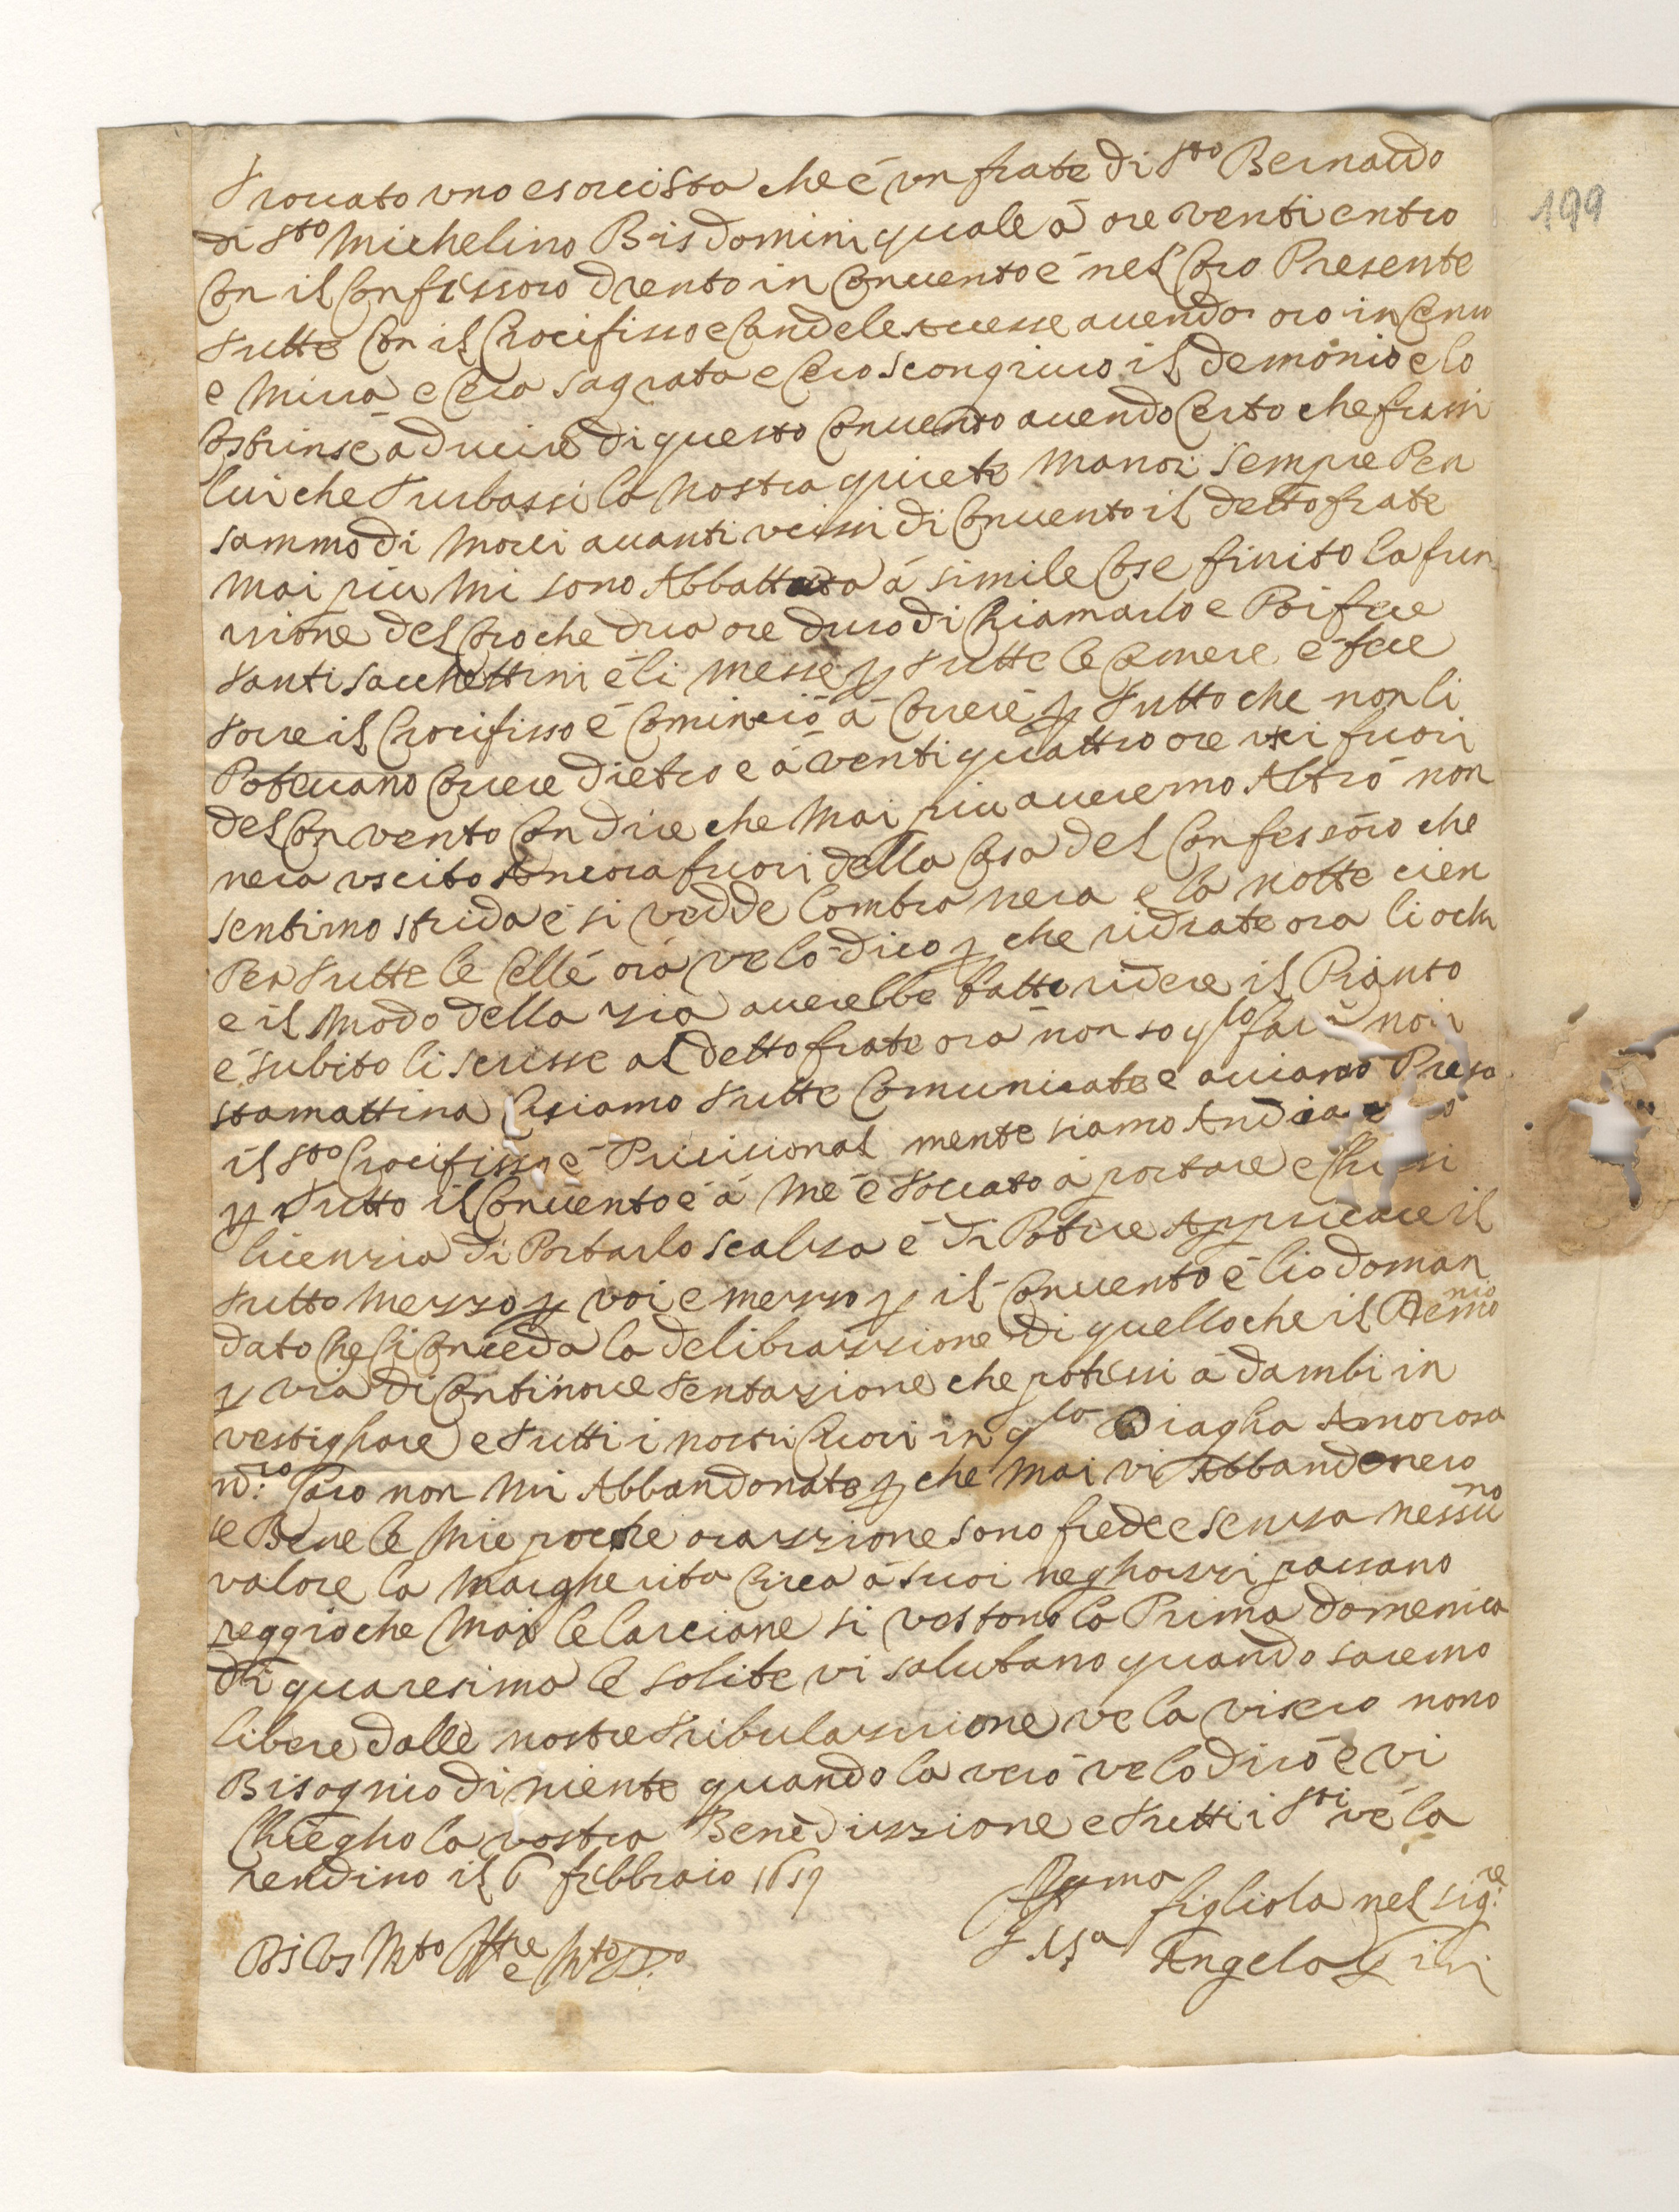 Trouato uno esorcista che é un frate di Sto Bernardo
di Sto Michelino Bisdomini quale á ore venti entro
Con il Confessoro drento in Conuento é nel Coro Presente
Tutte Con il Crocifisso e Candele auendo oro incenso
e Mirra e Cera sagrata e Cero scongiuro il demonio e lo
Costrinse ad ucire di questo Conuento auendo Certo che fussi
lui che Turbassi la nostra quiete Ma noi sempre Pen
sammo di Morci auanti ucissi di Conuento il detto frate
Mai piu Mi sono Abbattuta á simile Cose finito la fun
zione del Coro che dua ore duro di Chiamarlo e Poi fece
Tanti sacchettini é li Messe p Tutte le Camere e fece
Torre il Crocifisso é Cominció á Correre p Tutto che non li
Poteuano Correre dietro e á venti quattro ore usci fuori
del Convento Con dire che Mai piu aueremo Altro non
nera uscito Ancora fuori della Casa del Confessoro che
sentimo strida é si vedde lombra nera e la notte
Per Tutte le Celle ora ve lo dico p che ridiate ora li
e il Modo della zia auerebbe fatto ridere il Pianto
é subito li scrisse al detto frate ora non so q lo fará noi
stamattina Ci siamo Tutte Comunicate e auiamo Preso
il Sto Crocifisso é Pricisional mente siamo
p Tutto il Conuento é á Me é Toccato á portare e Chiesi
licenzia di Portarlo scalza é di Potere Appricare il
Tutto Mezzo p voi e mezzo p il Conuento é lio doman
dato Che Ci Conceda la delibrazzione di quello che il Demonio
p via di Continoue Tentazione che potessi á dambi in
vestighare e Tutti i nostri Cuori in q ta Piagha Amorosa
Caro non Mi Abbandonate p che Mai vi Abbandonero
se Bene le Mie poche orazzione sono frede e senza nessuno
valore la Margherita Circa á suoi neghozzi passano
peggio che Mai le si vestono la Prima domenica
di quaresima le solite vi salutano quando saremo
libere dalle nostre Tribulazzione ve la visero nono
Bisognio di niente quando la veró velo diró é vi
Chiegho la vostra Benedizzione e Tutti i Sti ve la
rendino il 6 febbraio 1619
figliola nel Sig:re
Angela
199